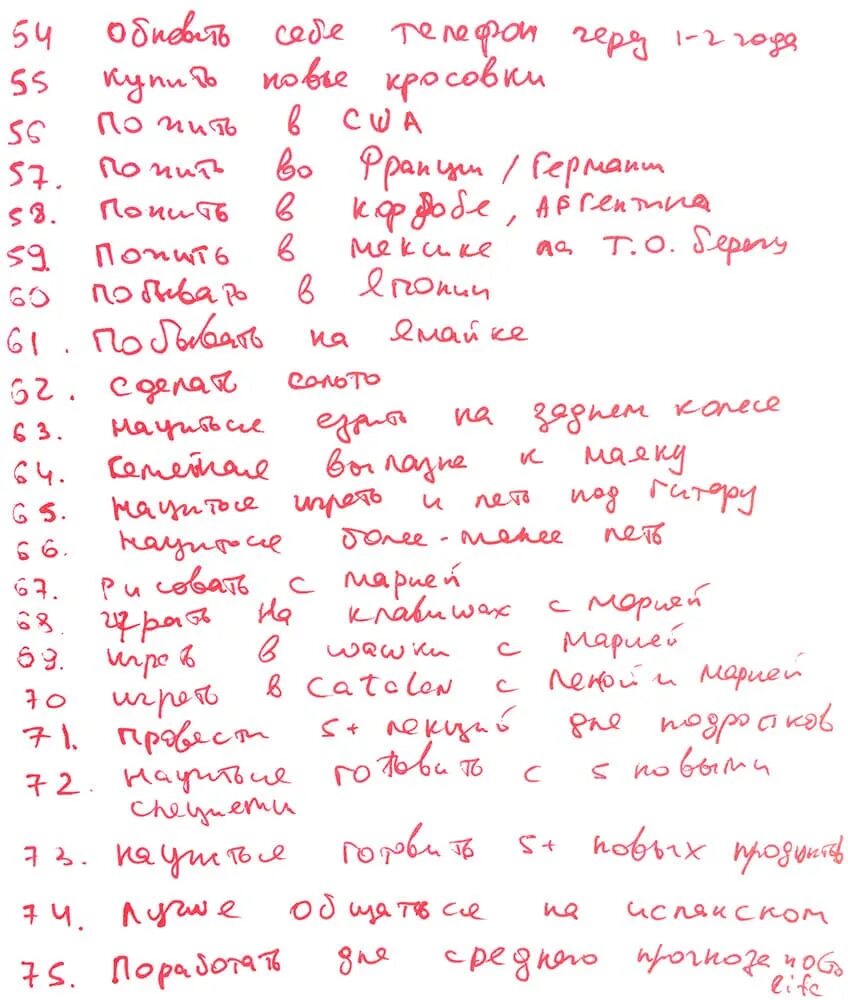 54 Обновить себе телефон через 1-2 года
55 купить новые кросовки
56 Пожить в США
57. Пожить во Франции / Германии
58. Пожить в кордобе, Аргентина
59. Пожить в мексике на Т.О. берегу
60 побывать в Японии
61. Побывать на Ямайке
62. сделать сальто
63. научиться ездить на заднем колесе
64. Семейная вылазка к маяку
65. научиться играть и петь под гитару
66. научиться более-менее петь
67. рисовать с марией
68 играть на клавишах с марией
69. играть в шашки с марией
70 играть в Catalan с леной и марией
71. провести 5+ лекций для подростков
72. научиться готовить с 5 новыми
специями
73. научиться готовить 5+ новых продуктов
74. лучше общаться на испанском
75. Поработать для среднего прогноза по
life